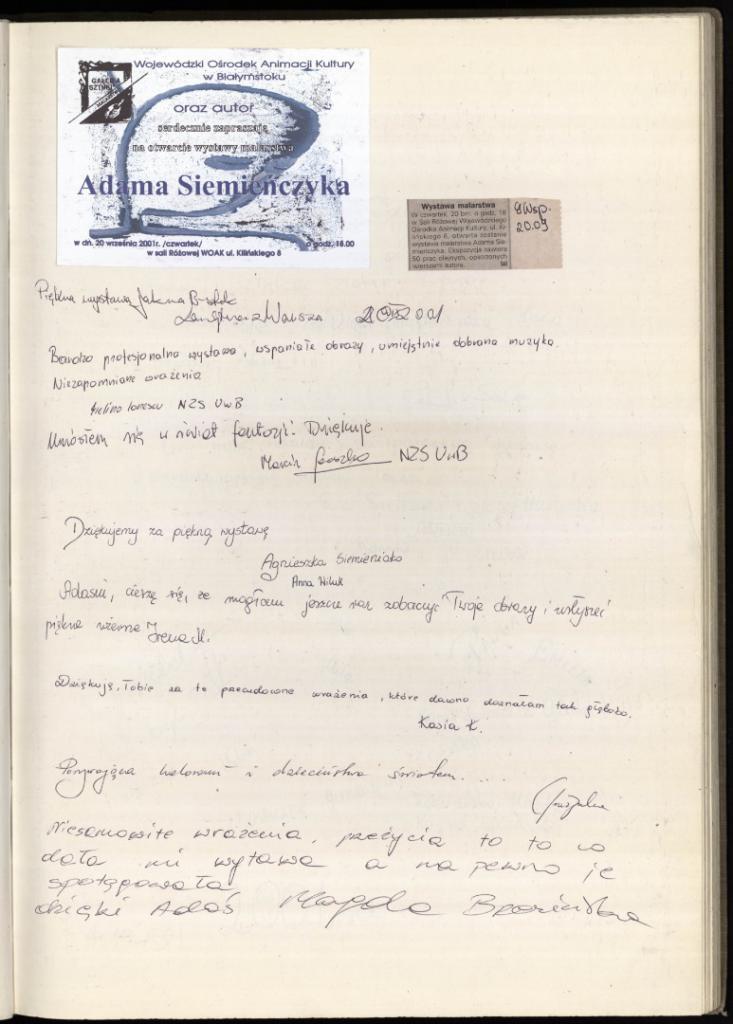 Wojewódzki Ośrodek Animacji Kultury
w Białymstoku
GALERIA
oraz autor
serdecznie zapraszają
na otwarcie wystawy malarstwa
Adama Siemieńczyka
w dn. 20 września 2001r. /czwartek/ o godz. 18.00
w sali Różowej WOAK ul. Kilińskiego 8
Wystawa malarstwa
W czwartek, 20 bm. o godz. 18
w Sali Różowej Wojewódzkiego
Ośrodka Animacji Kultury, ul. Ki-
lińskiego 8, otwarta zostanie
wystawa malarstwa Adama Sie-
mieńczyka. Ekspozycja zawiera
50 prac olejnych, opatrzonych
wierszami autora.
GWsp.
20.09
Piękna wystawa
Bardzo profesjonalna wystawa, wspaniałe obrazy, umiejętnie dobrana muzyka.
Niezapomniane wrażenia
NZS UwB
Uniosłem się w świat fantazji! Dziękuję.
Marcin NZS UwB
Dziękujemy za piękną wystawę
Agnieszka Siemieniako
Anna Wiluk
Adasiu, cieszę się, że mogłam jeszcze raz zobaczyć Twoje obrazy i usłyszeć
piękne wiersze Irena M.
Dziękuję Tobie za te przecudowne wrażenia, które dawno doznałam tak głęboko.
Kasia Ł.
i dzieciństwa światem...
Niesamowite wrażenia, przeżycia to to co
dała mi wytawa a na pewno je
spotęgowała
dzięki Adaś Magda